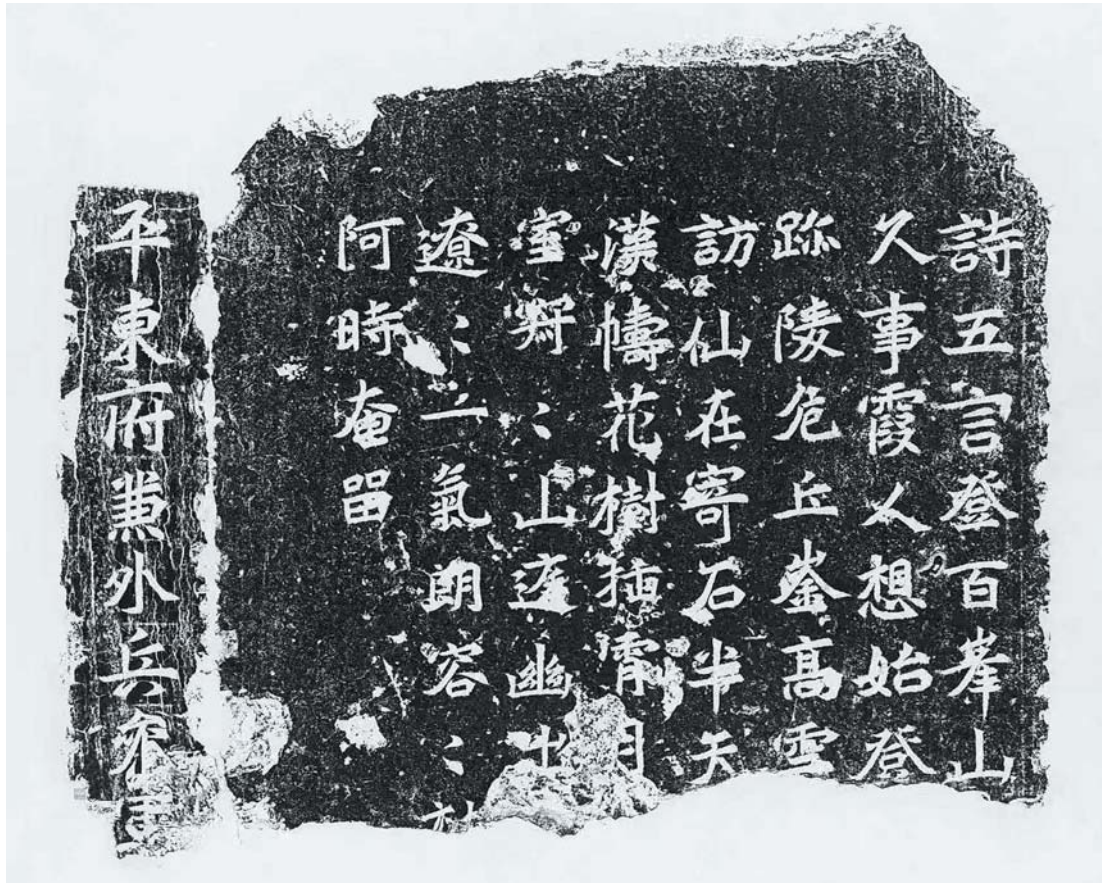 詩五言登百峯山
久事霞人想始登
跡陵危丘崟高雲
訪仙在寄石半天
漢幬花樹插霄月
室〻山逕幽出
遼〻二氣朗容〻
阿時奄留
平東府兼外兵參軍